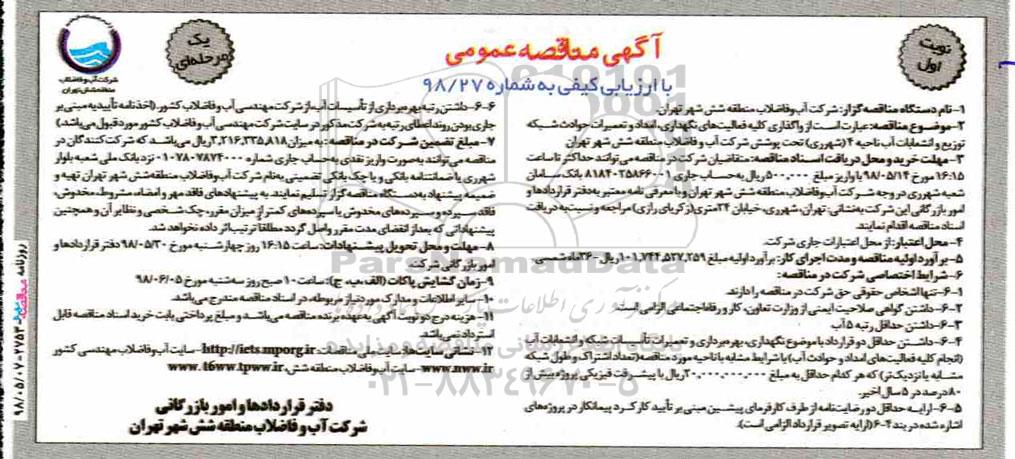 آگهی مناقصه عمومی
با ارزیابی کیفی به شماره ۹۸/۲۷
نوبت اول
یک مرحله‌ای
شرکت آب و فاضلاب
منطقه شش تهران
۱- نام دستگاه مناقصه گزار: شرکت آب و فاضلاب منطقه شش شهر تهران.
۲- موضوع مناقصه: عبارت است از واگذاری کلیه فعالیت‌های نگهداری، امداد و تعمیرات حوادث شبکه
توزیع و انشعابات آب ناحیه ۴ (شهرری) تحت پوشش شرکت آب و فاضلاب منطقه شش شهر تهران
۳- مهلت خرید و محل دریافت اسناد مناقصه: متقاضیان شرکت در مناقصه می‌توانند حداکثر تا ساعت
۱۶:۱۵ مورخ ۹۸/۰۵/۱۴ با واریز مبلغ ۵۰۰,۰۰۰ ریال به حساب جاری ۸۱۸۴۰۲۵۸۶۶۰۰۱ بانک سامان
شعبه شهرری در وجه شرکت آب و فاضلاب منطقه شش شهر تهران و با معرفی نامه معتبر به دفتر قراردادها و
امور بازرگانی این شرکت به نشانی: تهران، شهرری، خیابان ۲۴متری (زکریای رازی) مراجعه و نسبت به دریافت
اسناد مناقصه اقدام نمایند.
۴- محل اعتبار: از محل اعتبارات جاری شرکت.
۵- برآورد اولیه مناقصه و مدت اجرای کار: برآورد اولیه مبلغ ۱۰۱,۷۴۴,۵۲۷,۲۵۹ ریال - ۳۶ ماه شمسی.
۶- شرایط اختصاصی شرکت در مناقصه:
۶-۱- تنها اشخاص حقوقی حق شرکت در مناقصه را دارند.
۶-۲- داشتن گواهی صلاحیت ایمنی از وزارت تعاون، کار و رفاه اجتماعی الزامی است.
۶-۳- داشتن حداقل رتبه ۵ آب
۶-۴- داشتن حداقل دو قرارداد با موضوع نگهداری، بهره‌برداری و تعمیرات تاسیسات شبکه و انشعابات آب
(انجام کلیه فعالیت‌های امداد و حوادث آب) با شرایط مشابه با ناحیه مورد مناقصه (تعداد اشتراک و طول شبکه
مشابه یا نزدیک‌تر) که هر کدام حداقل به مبلغ ۲۰,۰۰۰,۰۰۰,۰۰۰ ریال با پیشرفت فیزیکی پروژه بیش از
۸۰ درصد در ۵ سال اخیر.
۶-۵- ارایه حداقل دو رضایت‌نامه از طرف کارفرمای پیشین مبنی بر تأیید کارکرد پیمانکار در پروژه‌های
اشاره شده در بند ۴-۶ (ارایه تصویر قرارداد الزامی است).
۶-۶- داشتن رتبه بهره‌برداری از تأسیسات آب از شرکت مهندسی آب و فاضلاب کشور. (اخذ نامه تأییدیه مبنی بر
جاری بودن روند اعطای رتبه به شرکت مذکور در سایت شرکت مهندسی آب و فاضلاب کشور مورد قبول می‌باشد)
۷- مبلغ تضمین شرکت در مناقصه: به میزان ۳,۲۱۶,۳۳۵,۸۱۸ ریال می‌باشد که شرکت‌کنندگان در
مناقصه می‌توانند به صورت واریز نقدی به حساب جاری شماره ۰۱۰۷۸۰۷۸۷۴۰۰۰ نزد بانک ملی شعبه بلوار
شهرری یا ضمانتنامه بانکی و یا چک بانکی تضمینی به نام شرکت آب و فاضلاب منطقه شش شهر تهران تهیه و
ضمیمه پیشنهاد به دستگاه مناقصه گزار تسلیم نمایند. به پیشنهادهای فاقد مهر و امضاء، مشروط، مخدوش،
فاقد سپرده و سپرده‌های مخدوش یا سپرده‌های کمتر از میزان مقرر، چک شخصی و نظایر آن و همچنین
پیشنهاداتی که بعد از انقضای مدت مقرر واصل گردد مطلقا ترتیب اثر داده نخواهد شد.
۸- مهلت و محل تحویل پیشنهادات: ساعت ۱۶:۱۵ روز چهارشنبه مورخ ۹۸/۰۵/۳۰ دفتر قراردادها و
امور بازرگانی شرکت.
۹- زمان گشایش پاکات (الف، ب، ج): ساعت ۱۰ صبح روز سه‌شنبه مورخ ۹۸/۰۶/۰۵
۱۰- سایر اطلاعات و مدارک مورد نیاز مربوطه، در اسناد مناقصه مندرج می‌باشد.
۱۱- هزینه درج دو نوبت آگهی به عهده برنده مناقصه می‌باشد و مبلغ پرداختی بابت خرید اسناد مناقصه قابل
استرداد نمی‌باشد.
۱۲- نشانی سایت‌ها: سایت ملی مناقصات: http://iets.mporg.ir - سایت آب و فاضلاب مهندسی کشور
www.nww.ir - سایت آب و فاضلاب منطقه شش، www.t6ww.tpww.ir
دفتر قراردادها و امور بازرگانی
شرکت آب و فاضلاب منطقه شش شهر تهران
روزنامه مناقصه مزایده ۲۷۵۳ - ۹۸/۰۵/۰۷
ParsNamadData
۰۲۱-۸۸۳۴۹۶۷۰-۵